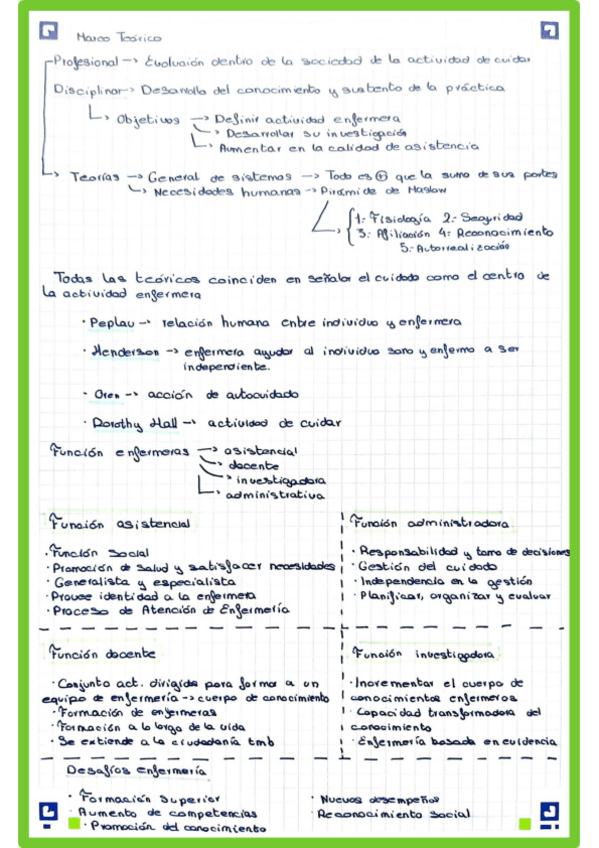 Marco Teórico
Profesional -> Evolución dentro de la sociedad de la actividad de cuidar
Disciplinar -> Desarrolla del conocimiento y sustento de la práctica
Objetivos -> Definir actividad enfermera
Desarrollar su investigación
Aumentar en la calidad de asistencia
Teorías -> General de sistemas -> Todo es + que la suma de sus partes
Necesidades humanas -> Pirámide de Maslow
1.- Fisiología 2.- Seguridad
3.- Afiliación 4.- Reconocimiento
5.- Autorrealización
Todas las teóricos coinciden en señalar el cuidado como el centro de
la actividad enfermera
· Peplau -> relación humana entre individuo y enfermera
· Henderson -> enfermera ayudar al individuo sano y enfermo a ser
independiente.
· Oren -> acción de autocuidado
· Dorothy Hall -> actividad de cuidar
Función enfermeras -> asistencial
docente
investigadora
administrativa
Función asistencial
· Función Social
· Promoción de salud y satisfacer necesidades
· Generalista y especialista
· Provee identidad a la enfermera
· Proceso de Atención de Enfermería
Función administradora
· Responsabilidad y toma de decisiones
· Gestión del cuidado
· Independencia en la gestión
· Planificar, organizar y evaluar
Función docente
· Conjunto act. dirigida para formar a un
equipo de enfermería -> cuerpo de conocimiento
· Formación de enfermeras
· Formación a lo largo de la vida
· Se extiende a la ciudadanía tmb
Función investigadora
· Incrementar el cuerpo de
conocimientos enfermeros
· Capacidad transformadora del
conocimiento
· Enfermería basada en evidencia
Desafíos enfermería
· Formación superior
· Aumento de competencias
· Promoción del conocimiento
· Nuevos desempeños
· Reconocimiento social